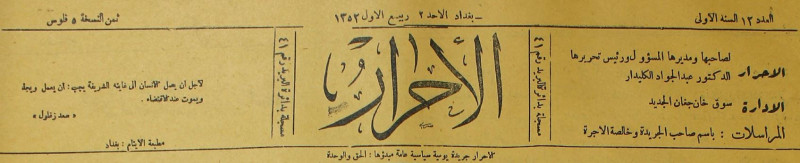 العدد ١٣ السنه الاولى
ـ بغداد الاحد ٢ ربيع الاول ١٣٥٣
ثمن النسخة ٥ فلوس
الاحرار
لصاحبها ومديرها المسؤول ورئيس تحريرها
الدكتور عبدالجواد الكليدار
الادارة
سوق خان جغان الجديد
المراسلات : باسم صاحب الجريدة وخالصة الاجرة
مسجلة بدائرة البريد رقم ٤١
الأحرار
مسجلة بدائرة البريد رقم ٤١
لاجل ان يصل الانسان الى غايته الشريفة يجب : ان يعمل ويجد
ويموت عند الاقتضاء .
« سعد زغلول »
مطبعة الايتام : بغداد
الاحرار جريدة يومية سياسية عامة مبدؤها : الحق والوحدة